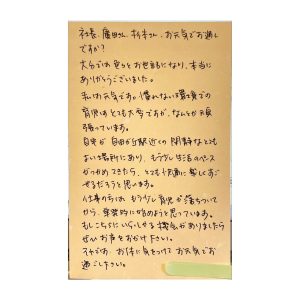 社長、廣田さん、杉本さん、お元気でお過し
ですか？
大分では色々とお世話になり、本当に
ありがとうございました。
私は元気です。慣れない環境での
育児はとても大変ですが、なんとか頑
張っています。
自宅が自由が丘駅近くの閑静なとても
ない場所にあり、もう少し生活のペース
がつかめてきたら、とても快適に楽しくすご
せるだろうと思います。
仕事の方は、もう少し育児が落ちついて
から、本格的に始めようと思っています。
もしこちらにいらっしゃる機会がありましたら
ぜひお声をおかけ下さい。
それでは、お体に気をつけてお元気でお
過ごし下さい。